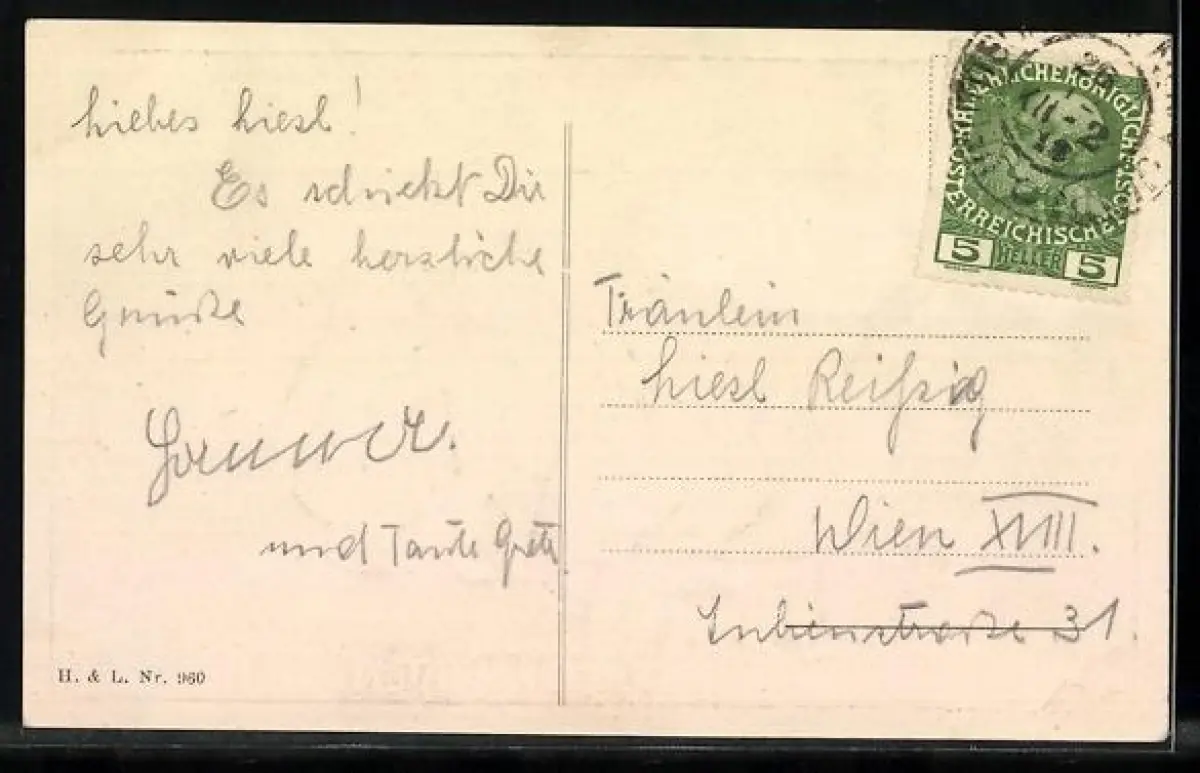 Liebes Liesl!
Es schickt Dir
sehr viele herzliche
Grüße
und Tante Grete
H. & L. Nr. 960
KAISERLICHE KÖNIGLICHE
ÖSTERREICHISCHE
5 HELLER 5
Fräulein
Liesl Reißig
Wien XVIII.
31.